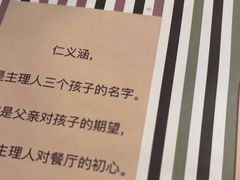 仁义涵,
是主理人三个孩子的名字。
是父亲对孩子的期望,
主理人对餐厅的初心。